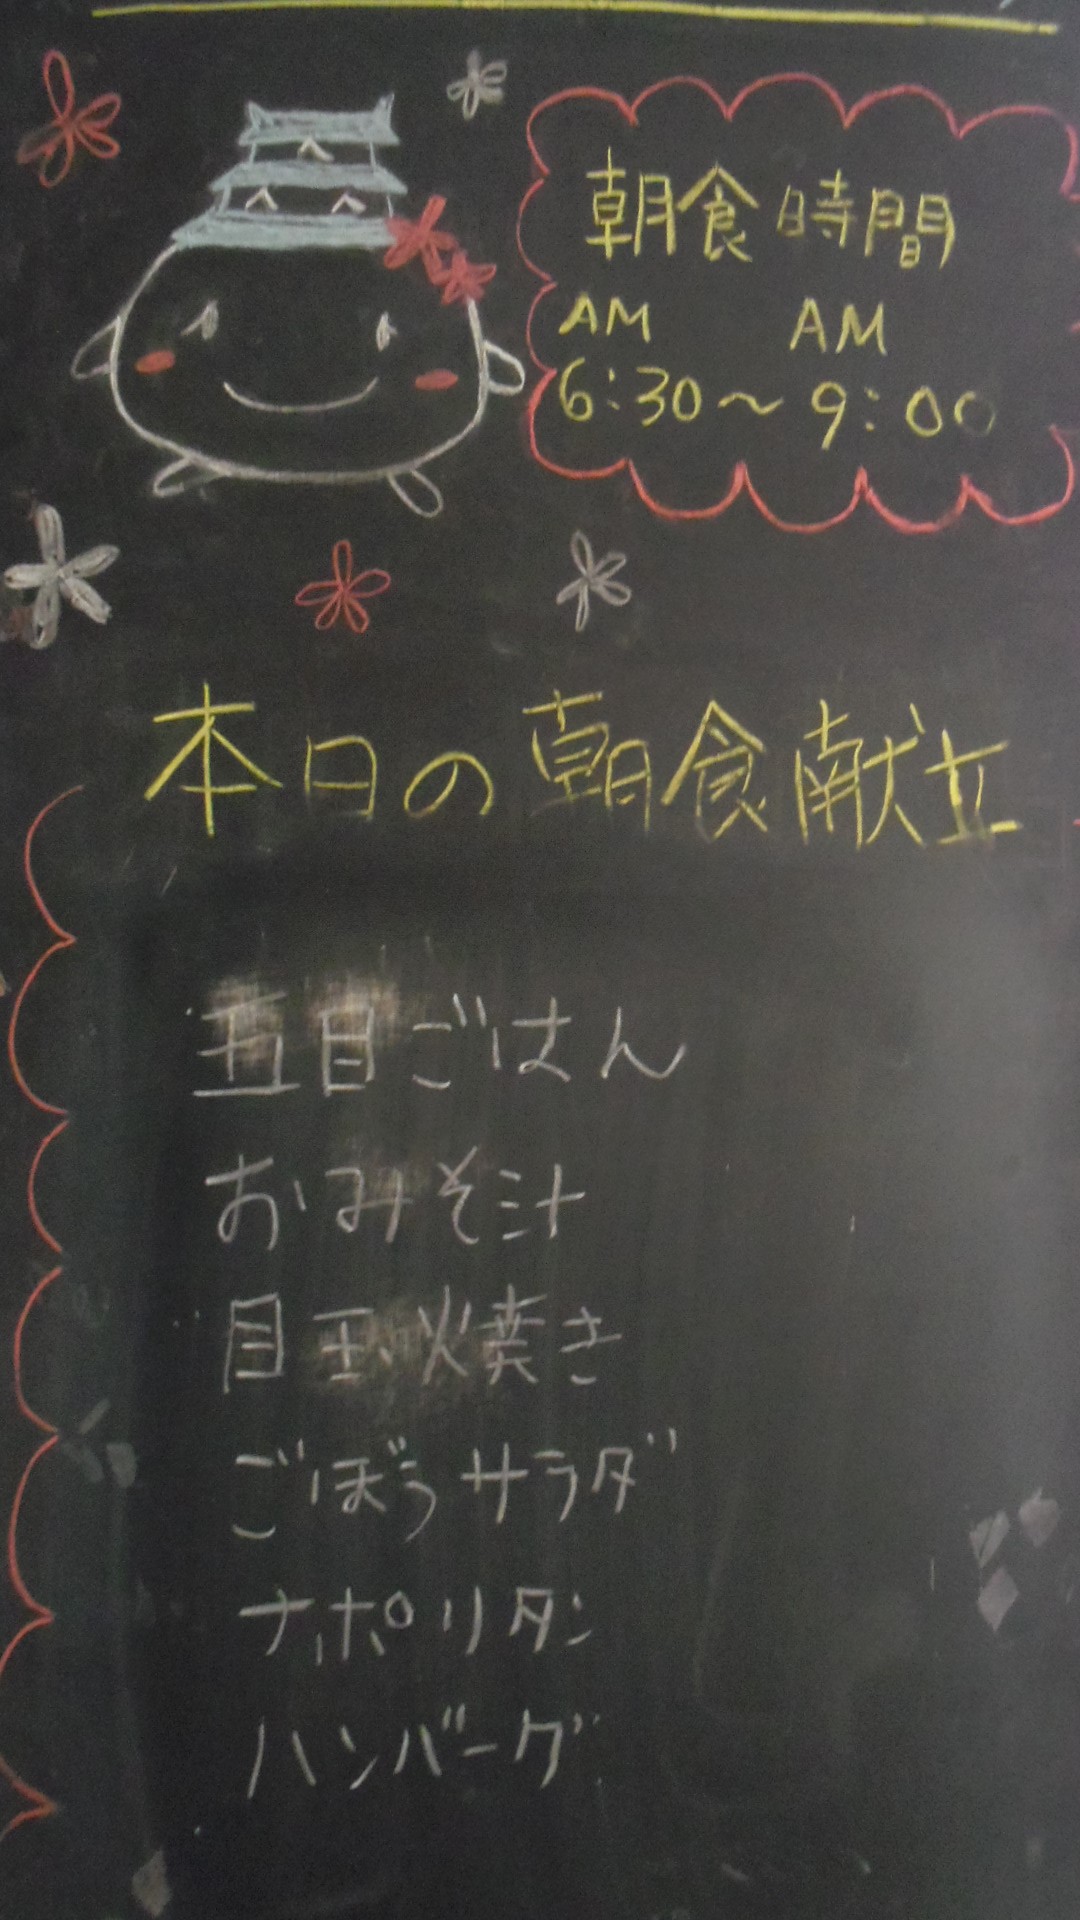 朝食時間
AM AM
6:30～9:00
本日の朝食献立
五目ごはん
おみそ汁
目玉焼き
ごぼうサラダ
ナポリタン
ハンバーグ